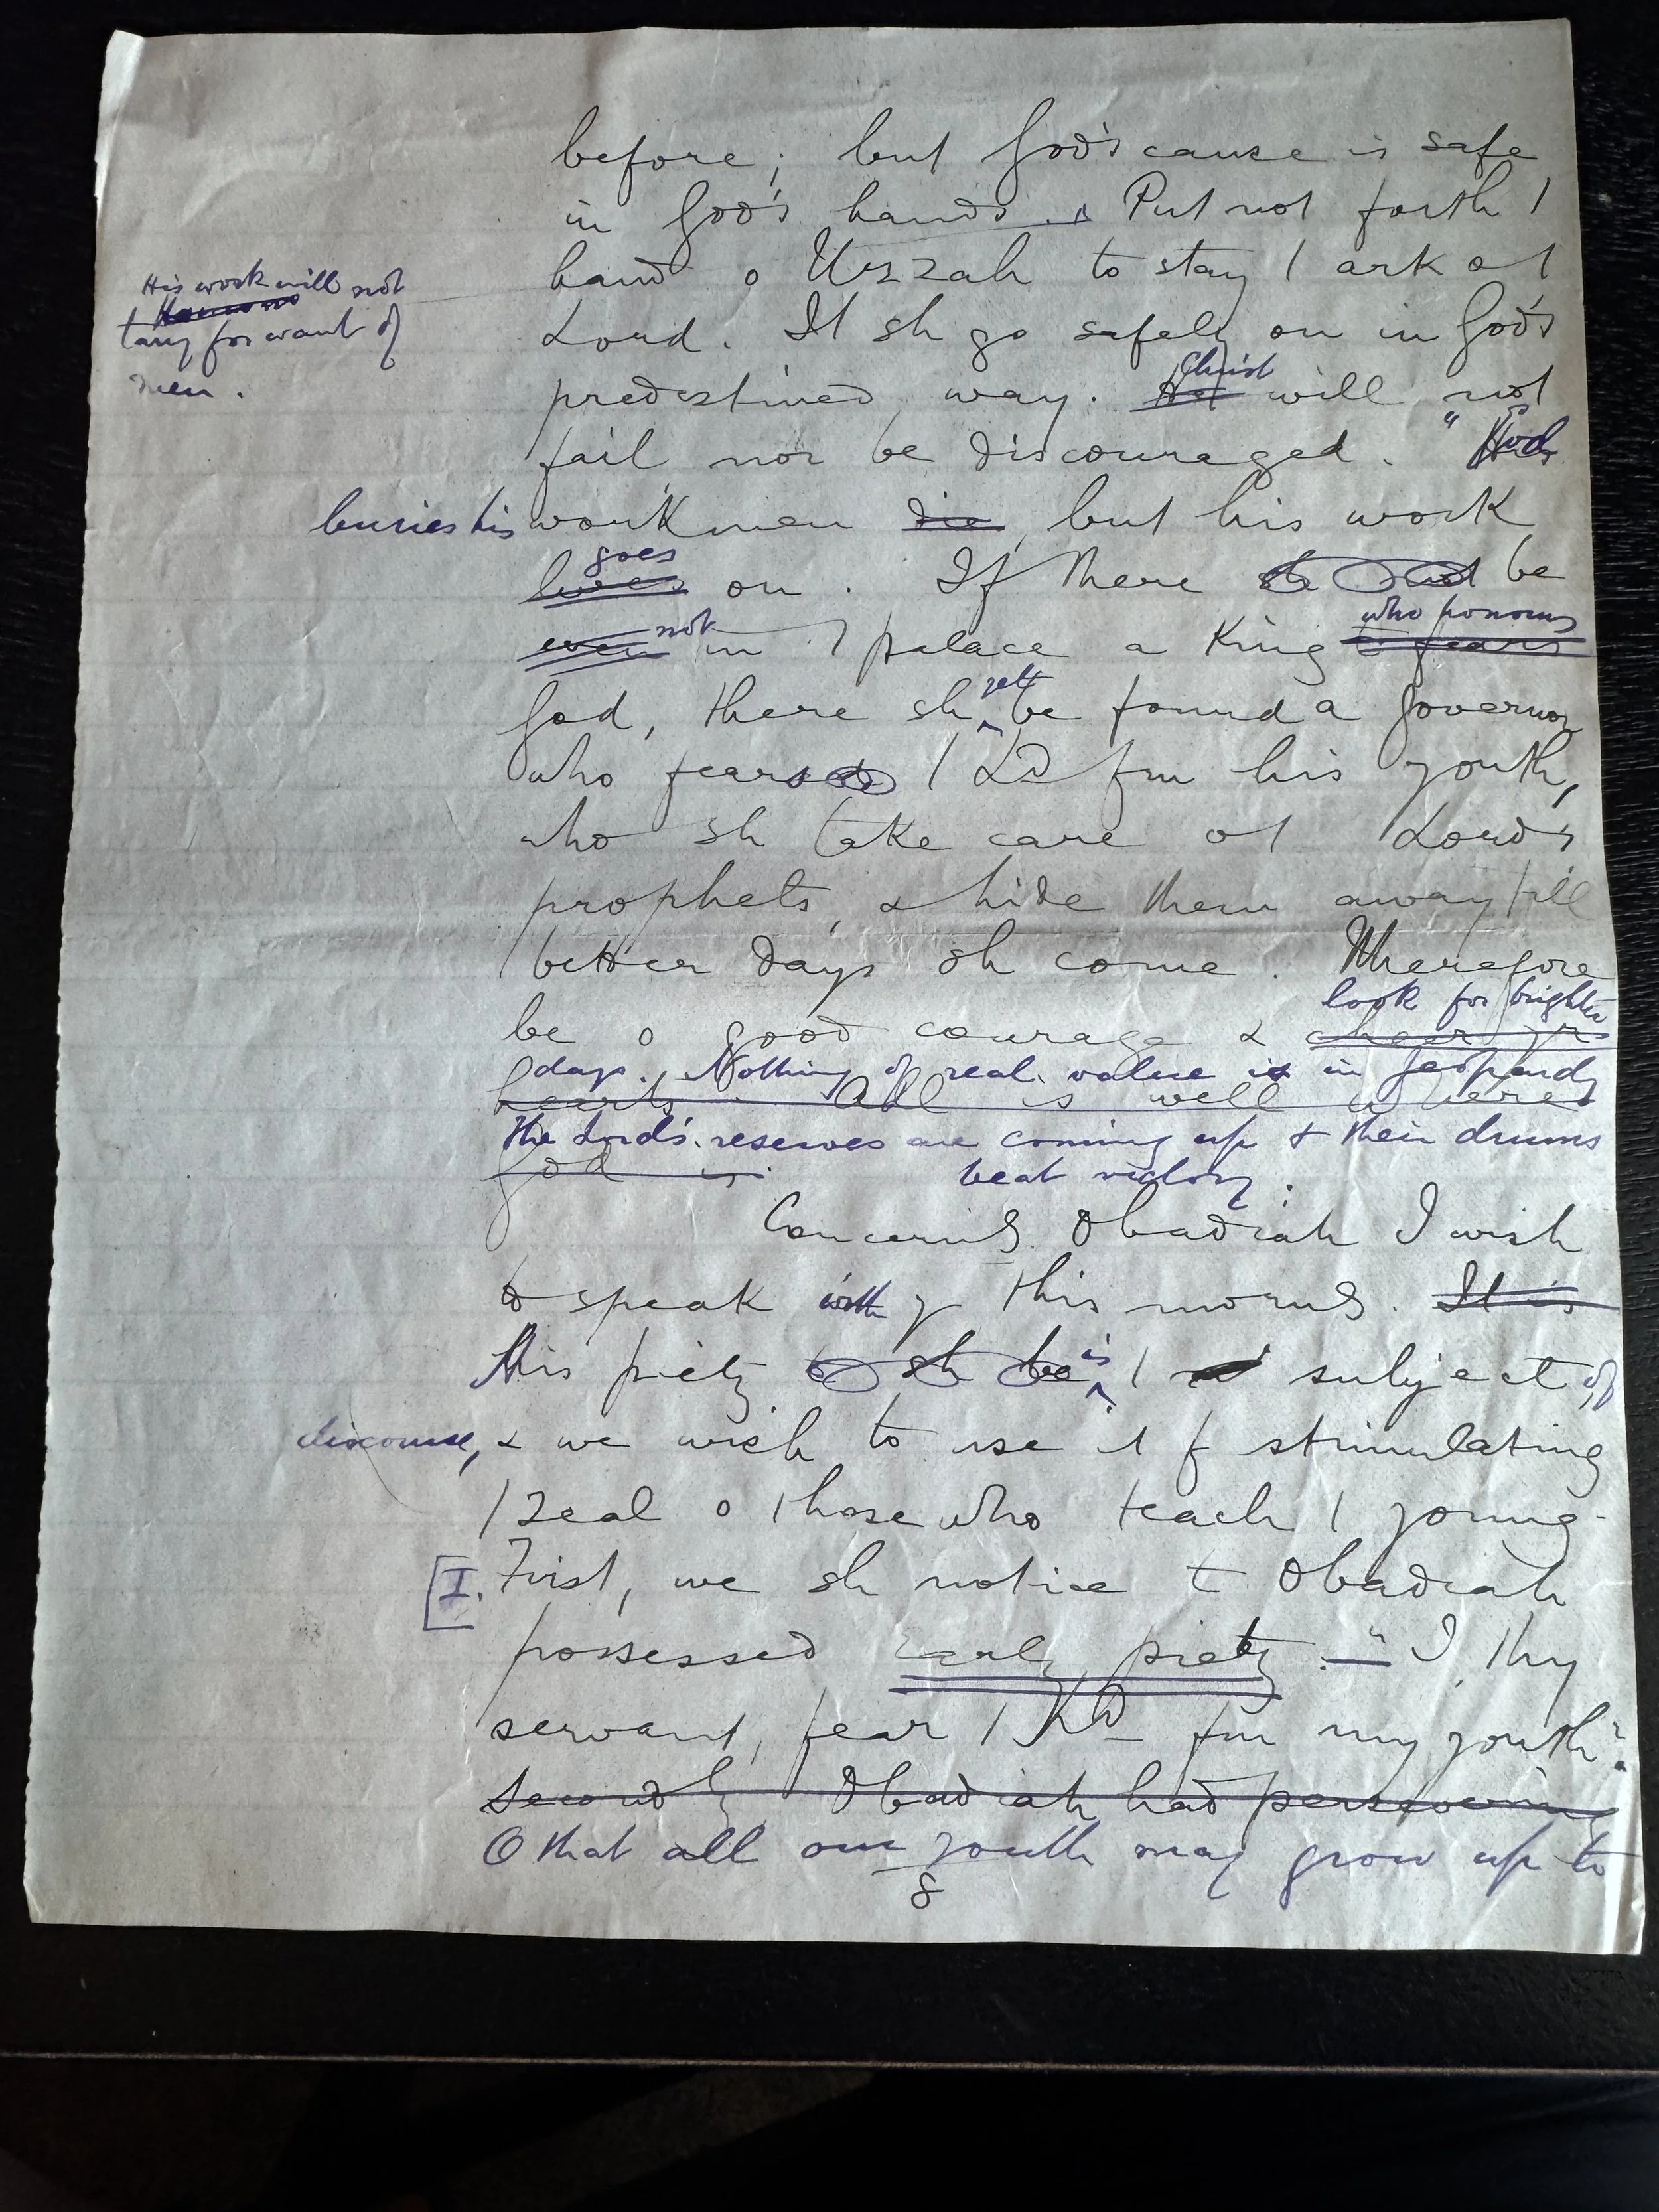 before; but God's cause is safe
in God's hands. Put not forth /
His work will not
tarry for want of
men.
hand o Uzzah to stay / ark o /
Lord. It sh go safely on in God's
Christ
predestined way. He will not
fail nor be discouraged. "God
buries his workmen die, but his work
goes
lives on. If there be
not who honours
even in / palace a King t fears
God, there sh yet be found a Governor
who fears / LD fm his youth,
who sh take care o / Lord's
prophets, & hide them away till
better days sh come. Wherefore
look for brighter
be o good courage & cheer yr
days. Nothing of real value is in jeopardy
hearts. All is well where
The Lord's reserves are coming up & their drums
God is.
beat victory.
Concerning Obadiah I wish
to speak with y this morng. It is
His piety sh be is / subject of
discourse, & we wish to use it f stimulating
/ zeal o those who teach / young.
[I. First, we sh notice t Obadiah
possessed early piety. — "I thy
servant, fear / LD fm my youth".
Secondly Obadiah had persevering
O that all our youth may grow up to
8